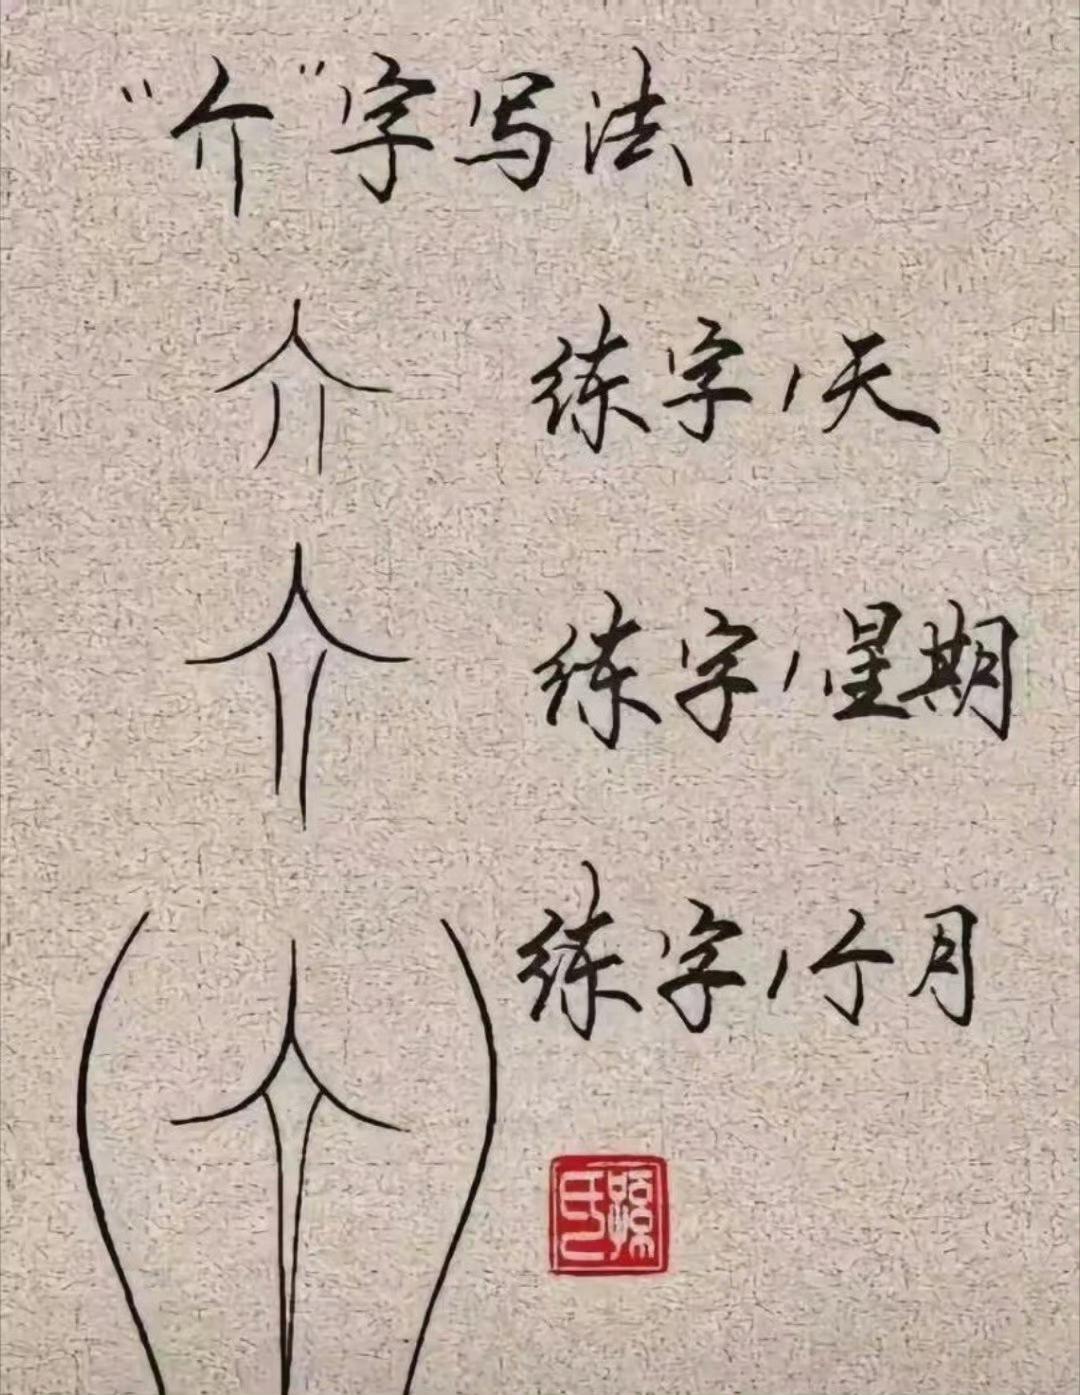 “介”字写法
练字1天
练字1星期
练字1个月